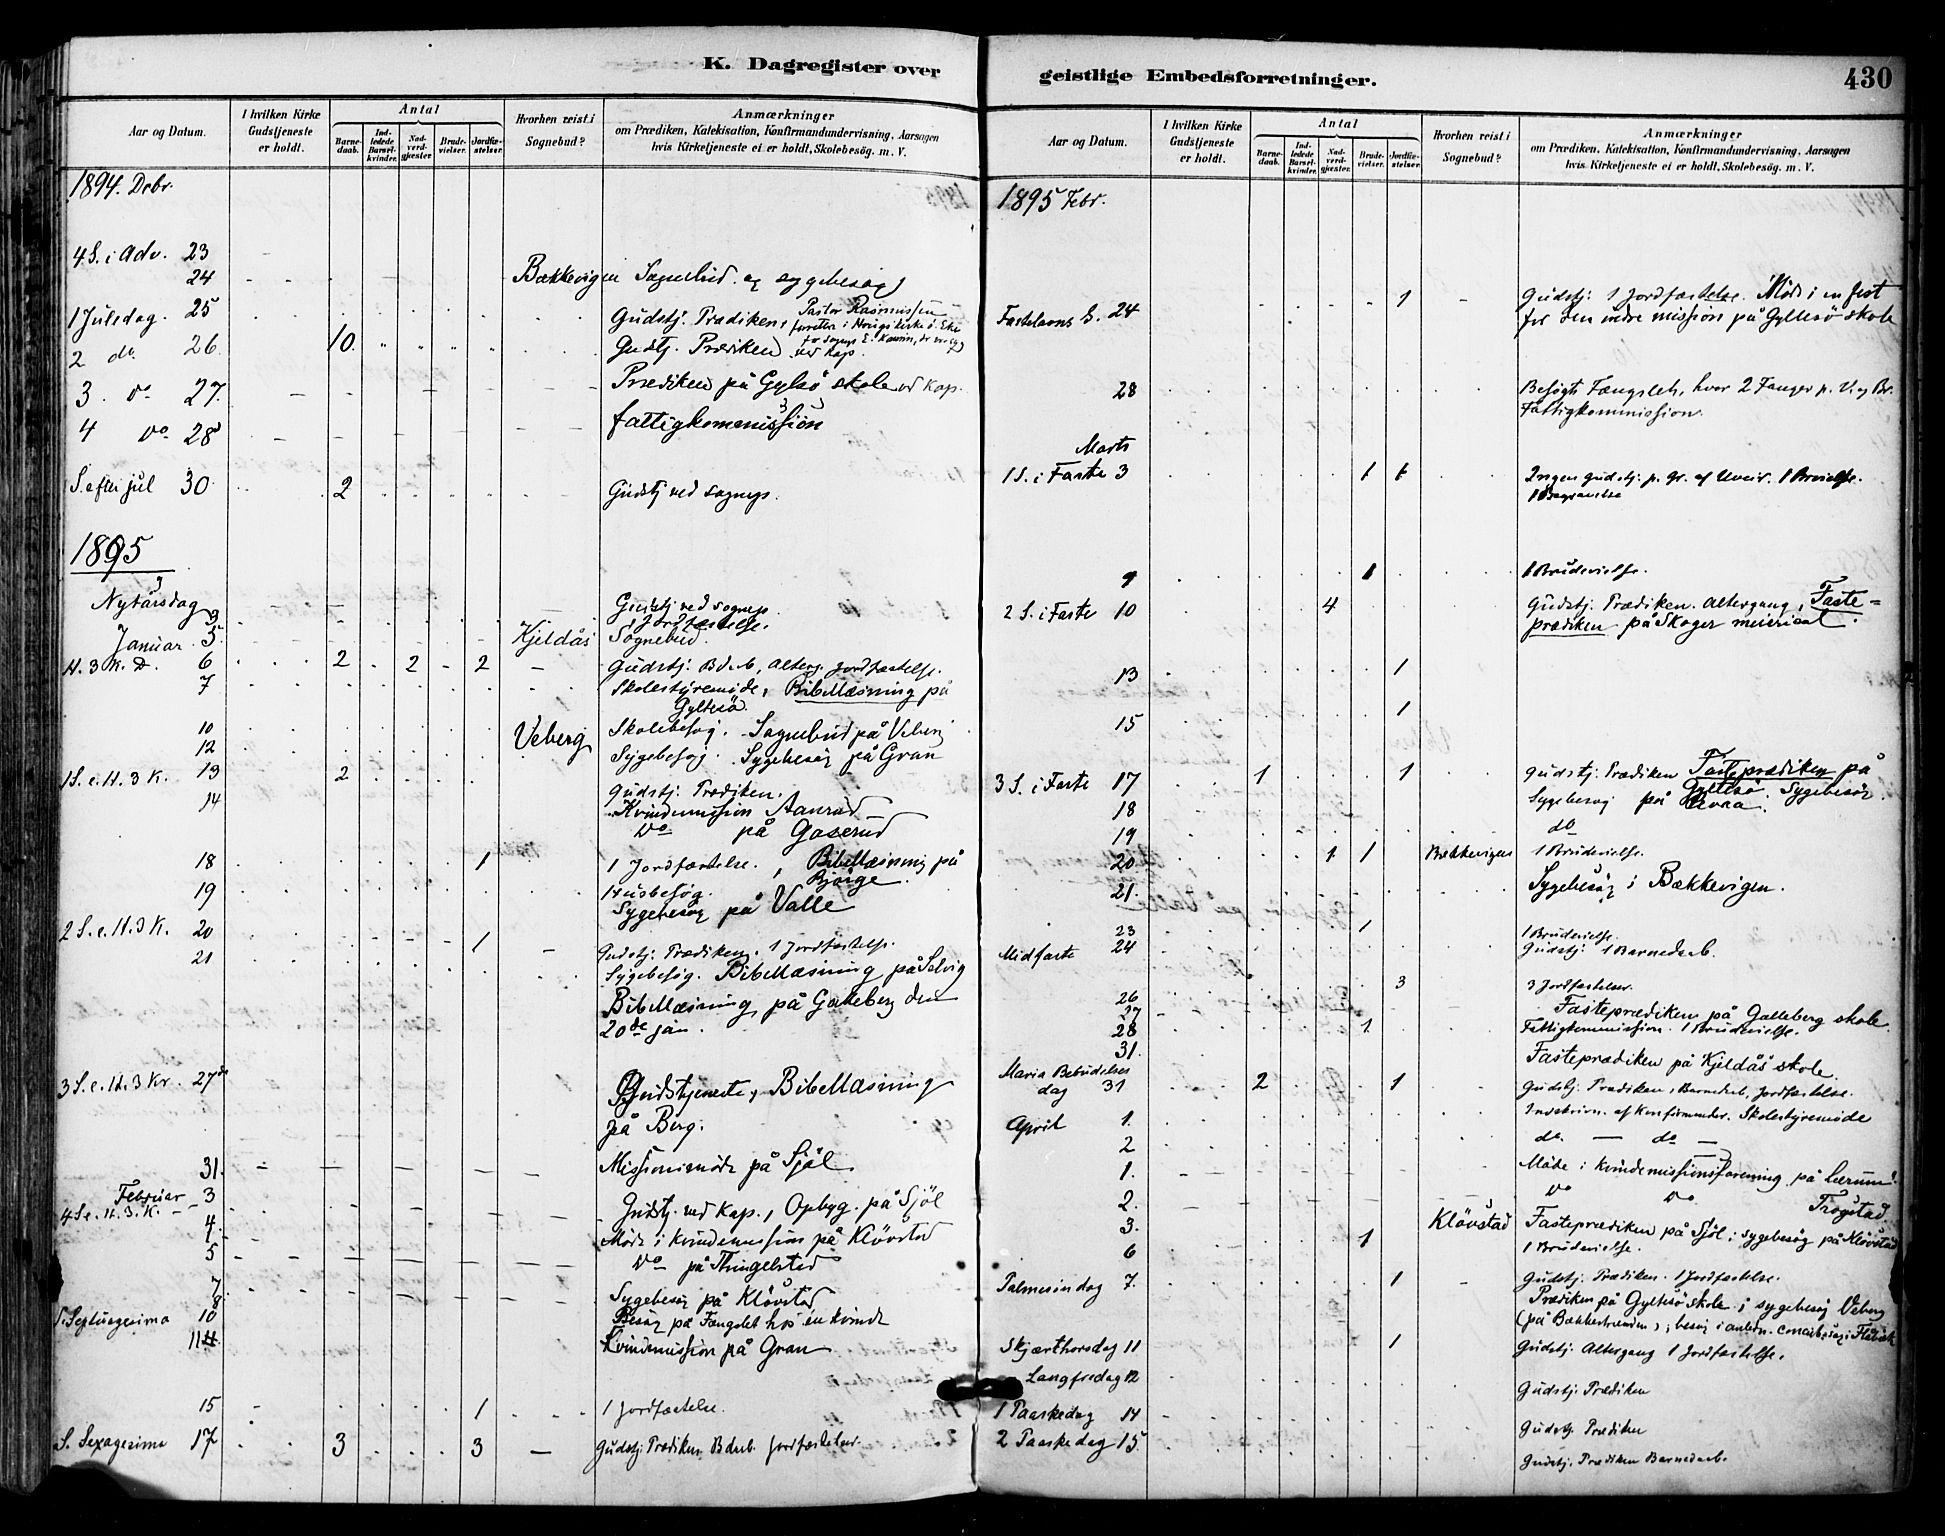 K. Dagregister over
Aar og Datum.
I hvilken Kirke Gudstjeneste er holdt.
Antal
Barnedaab.
Indledede Barselkvinder.
Nadverdgjester
Brudevielser.
Jordfæstelser.
Hvorhen reist i Sognebud?
Anmærkninger
om Prædiken, Katekisation, Konfirmandundervisning, Aarsagen
hvis Kirketjeneste ei er holdt, Skolebesög. m. V.
1894. Debr.
4 S. i Adv. 23
24 Bækkevigen Sognebud og sygebesøg
1 Juledag. 25 Gudstj. Prædiken, Pastor Rasmussen
2 do. 26 10 Gudstj. Prædiken ved Kap.
3 do 27. Prædiken på Gylsö skole ved Kap.
4 do 28 fattigkommission
S. efter jul 30 2 Gudstj ved sognep.
1895
Nytårsdag Gudstj ved sognep.
3 1 Jordfæstelse.
Januar 5. Kjeldås Sognebud
H. 3 K. D. 6 2 2 2 Gudstj. Bdåb, Alterg. Jordfæstelse.
7 Skolestyremøde, Bibellæsning på
Gyltesö.
10 Veberg Skolebesøg. Sognebud på Veberg
12 Sygebesøg. Sygebesøg på Gran
1 S. e. H. 3 K. 13 2 Gudstj. Prædiken.
14 Kvindemission Aanrud
do på Gaserud
18 1 1 Jordfæstelse. , Bibellæsning på
Bjørge.
19 Husbesøg.
Sygebesøg på Valle
2 S. e. H. 3 K. 20 1 Gudstj: Prædiken, 1 Jordfæstelse.
21 Sygebesøg. Bibellæsning på Selvig
Bibellæsning på Galleberg den
20de jan.
3 S. e. H. 3 Kr. 27de Gudstjeneste, Bibellæsning
på Berg.
31. Missionsmøde på Sjöl
Februar 3
4 S e. H. 3. K. Gudstj. ved Kap., Opbyg. på Sjöl
4. Møde i kvindemission på Klövstad
5 do på Thingelstad
7 Sygebesøg på Klövstad
8 Besøg på Fængslet hos en kvinde
S. Septuagesima 10
11 Kvindemission på Gran
15 1 1 Jordfæstelse.
S. Sexagesima 17 3 3 Gudstj. Prædiken Bdåb. Jordfæstelser.
geistlige Embedsforretninger.
430
Aar og Datum.
I hvilken Kirke Gudstjeneste er holdt.
Antal
Barnedaab.
Indledede Barselkvinder.
Nadverdgjester.
Brudevielser.
Jordfæstelser.
Hvorhen reist i Sognebud?
Anmærkninger
om Prædiken, Katekisation, Konfirmandundervisning, Aarsagen
hvis Kirketjeneste ei er holdt, Skolebesög. m. V.
1895 Febr.
Fastelavns S. 24 1 Gudstj. 1 Jordfæstelse. Møde i en fest
for den indre mission på Gyltesö skole
28 Besøgt Fængslet, hvor 2 Fanger p. V. og Br.
Fattigkommission.
Marts
1 S. i Faste 3 1 1 Ingen Gudstj. p. Gr. af Uveir. 1 Brvielse.
1 Begravelse
9 1 1 Brudevielse.
2 S. i Faste 10 4 Gudstj. Prædiken. Altergang, Faste=
prædiken på Skoger meierisal.
13 1
15 1
3 S. i Faste 17 1 1 Gudstj. Prædiken Fasteprædiken på
Gyltesö. Sygebesøg
18 Sygebesøg på
19 do
20 1 1 Bækkevigen 1 Brudevielse.
21. Sygebesøg i Bækkevigen.
23 1 1 Brudevielse.
Midfaste 24 Gudstj. 1 Barnedaab.
26 3 3 Jordfæstelser.
27 Fasteprædiken på Galleberg skole.
28 1 Fattigkommission. 1 Brudevielse.
31. Fasteprædiken på Kjeldås skole.
Maria Bebudelses
dag 31 2 1 Gudstj. Prædiken, Barnedåb, Jordfæstelse.
April 1. Indskrivn. af Konfirmander. Skolestyremøde
2 do. — do —
1. Møde i kvindemissionsforening på Lærum
2. do do Trøgstad
3. Klövstad Fasteprædiken på Sjöl; sygebesøg på Klövstad
6 1 1 Brudevielse.
Palmesøndag 7. 1 Gudstj. Prædiken. 1 Jordfæstelse.
Prædiken på Gyltesö skole; sygebesøg Veberg
(på Bækkestranden); besøg i anledn.
Skjærthorsdag 11 1 Gudstj. Altergang 1 Jordfæstelse.
Langfredag 12 Gudstj. Prædiken
1 Paaskedag 14 Gudstj. Prædiken
2 Paaskedag 15 Gudstj. Prædiken Barnedaab.